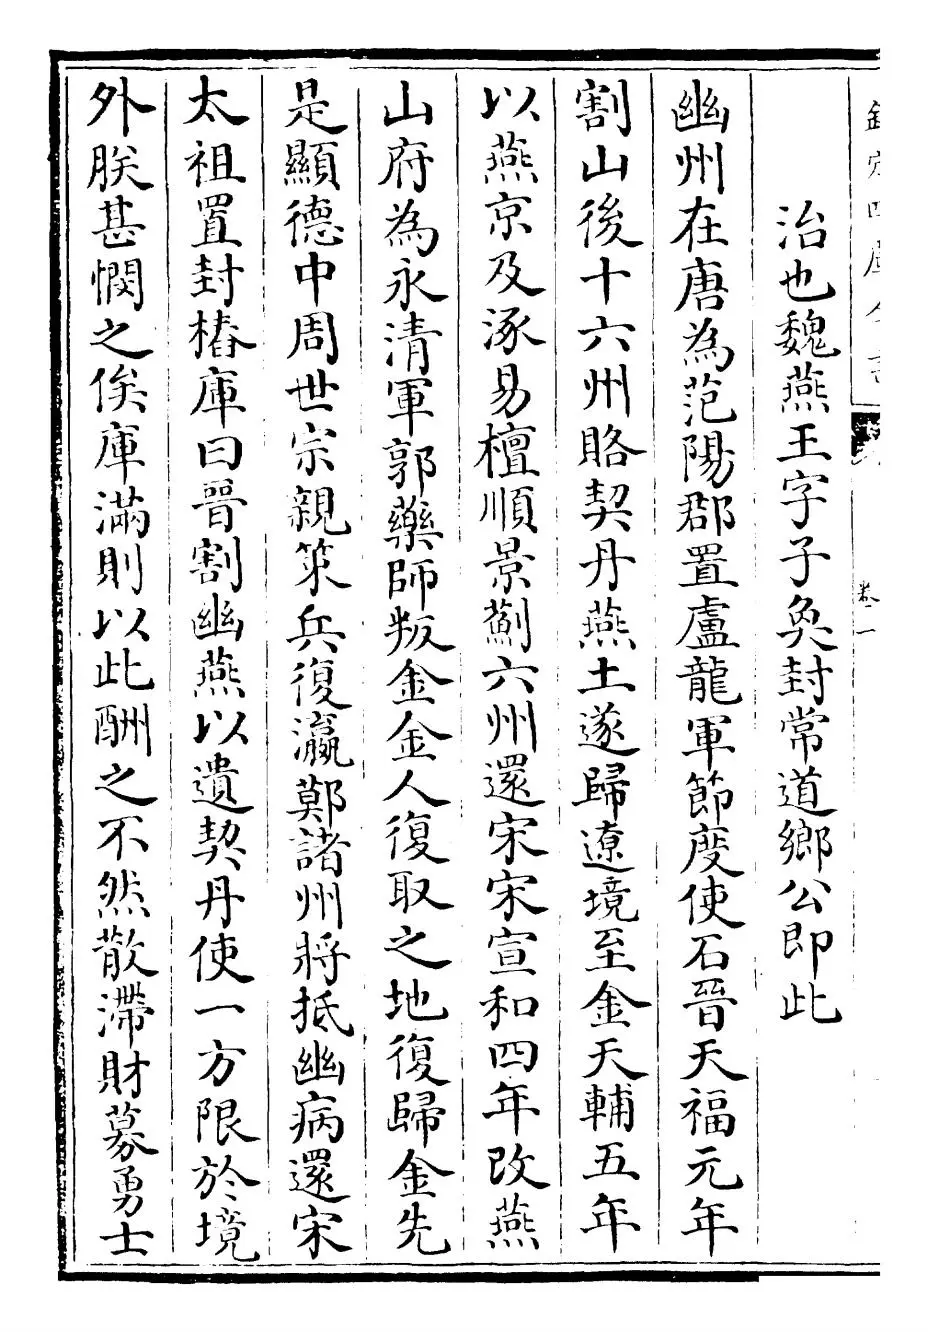 欽定四庫全書
卷一
治也魏燕王字子奐封常道鄉公即此
幽州在唐為范陽郡置盧龍軍節度使石晉天福元年
割山後十六州賂契丹燕土遂歸遼境至金天輔五年
以燕京及涿易檀順景薊六州還宋宋宣和四年改燕
山府為永清軍郭藥師叛金金人復取之地復歸金先
是顯德中周世宗親策兵復瀛鄭諸州將抵幽病還宋
太祖置封樁庫曰晉割幽燕以遺契丹使一方限於境
外朕甚憫之俟庫滿則以此酬之不然散滯財募勇士